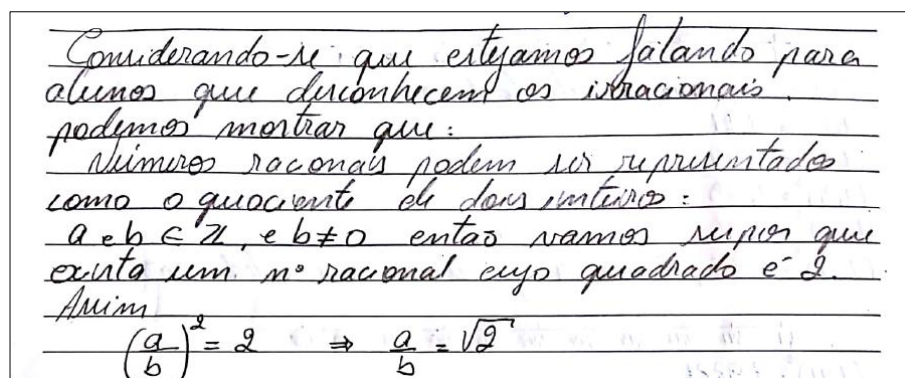 Considerando-se que estejamos falando para
alunos que desconhecem os irracionais.
podemos mostrar que:
Números racionais podem ser representados
como o quociente de dois inteiros:
a e b ∈ Z, e b ≠ 0 então vamos supor que
exista um nº racional cujo quadrado é 2.
Assim
(a/b)² = 2 ⇒ a/b = √2